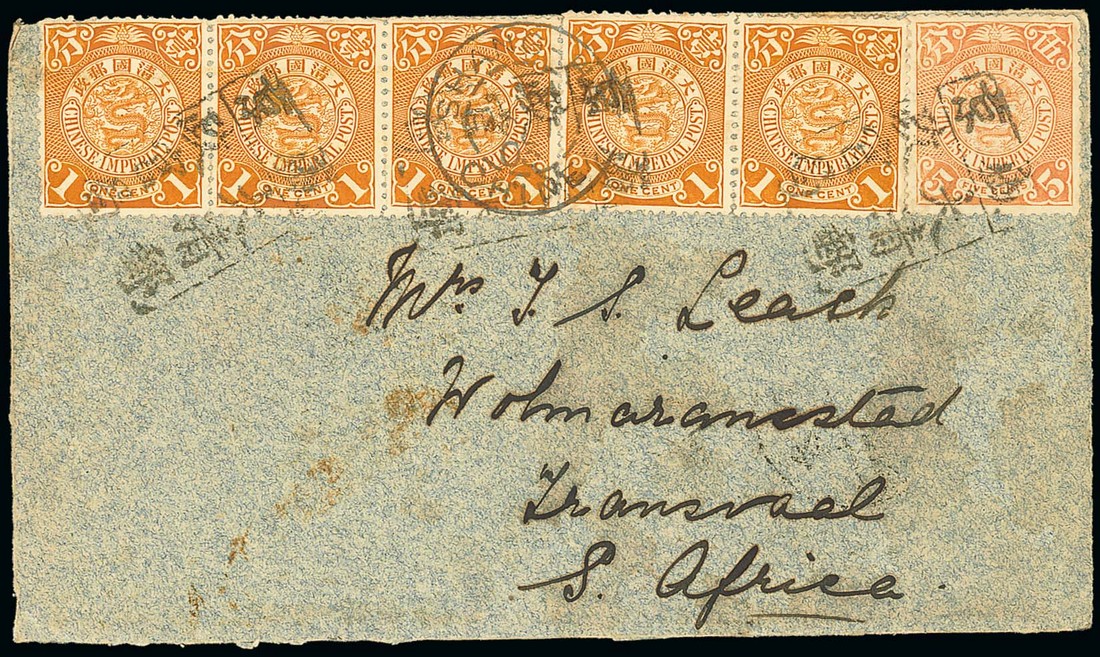 分壹 分壹 分壹 分壹 分壹 分伍
政郵國清大 政郵國清大 政郵國清大 政郵國清大 政郵國清大 政郵國清大
CHINESE IMPERIAL POST CHINESE IMPERIAL POST CHINESE IMPERIAL POST CHINESE IMPERIAL POST CHINESE IMPERIAL POST
1 ONE CENT 1 1 ONE CENT 1 1 1 1 ONE CENT 1 1 ONE CENT 1 5 5
Mrs J. S. Leach
Wolmaransstad
Transvaal
S. Africa